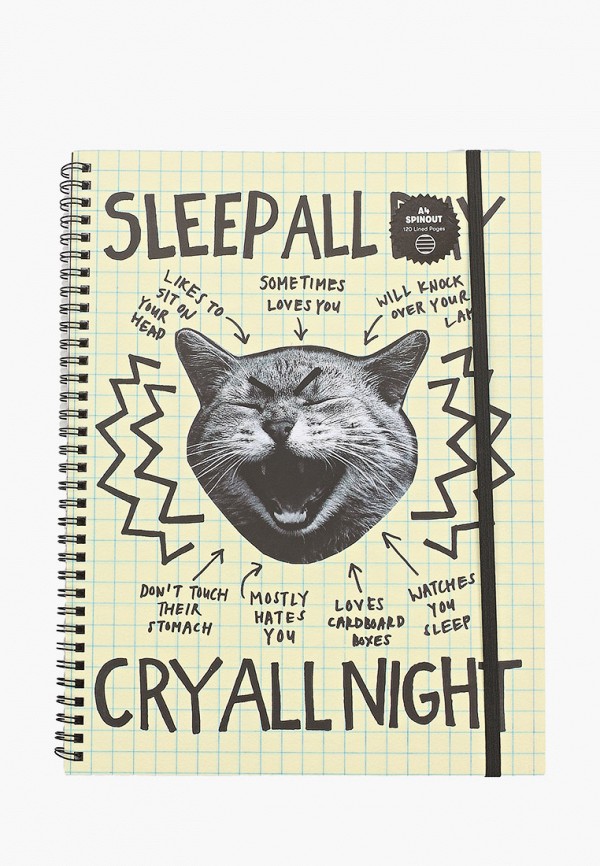 SLEEP ALL
A4
SPINOUT
120 Lined Pages
LIKES TO
SIT ON
YOUR
HEAD
SOMETIMES
LOVES YOU
WILL KNOCK
OVER YOUR
DON'T TOUCH
THEIR
STOMACH
MOSTLY
HATES
YOU
LOVES
CARDBOARD
BOXES
WATCHES
YOU
SLEEP
CRY ALL NIGHT